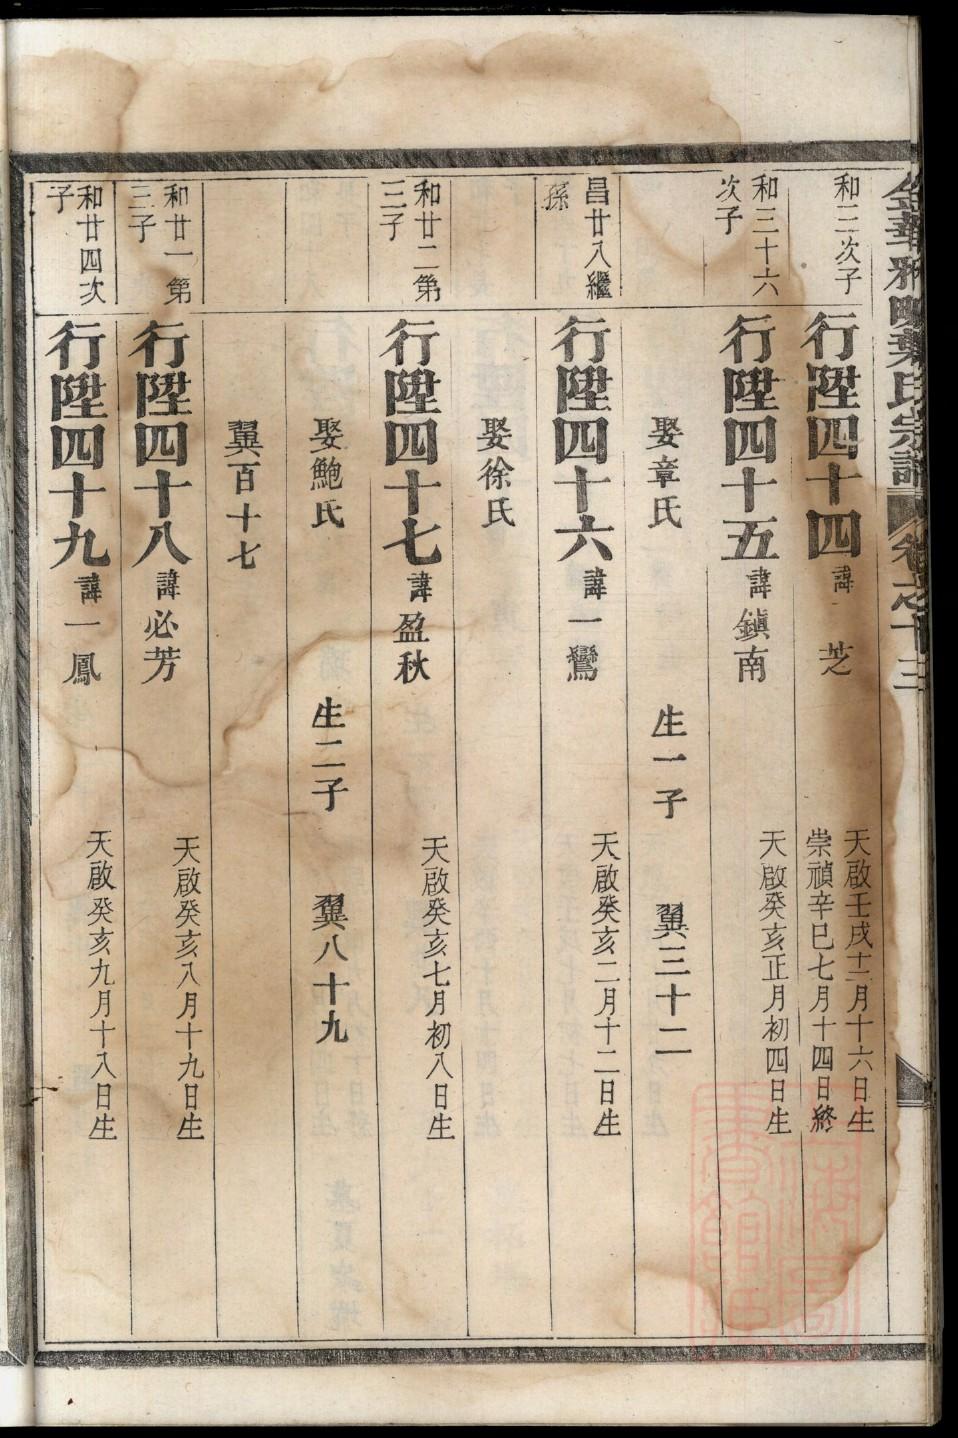 金華雅畈葉氏宗譜 卷之十三
和三次子
行陞四十四 諱 芝 天啟壬戌十二月十六日生
崇禎辛巳七月十四日終
和三十六
次子
行陞四十五 諱鎮南 天啟癸亥正月初四日生
娶章氏 生一子 翼三十二
昌廿八繼
孫
行陞四十六 諱一鸞 天啟癸亥二月十二日生
娶徐氏
和廿二第
三子
行陞四十七 諱盈秋 天啟癸亥七月初八日生
娶鮑氏 生二子 翼八十九
翼百十七
和廿一第
三子
行陞四十八 諱必芳 天啟癸亥八月十九日生
和廿四次
子
行陞四十九 諱一鳳 天啟癸亥九月十八日生